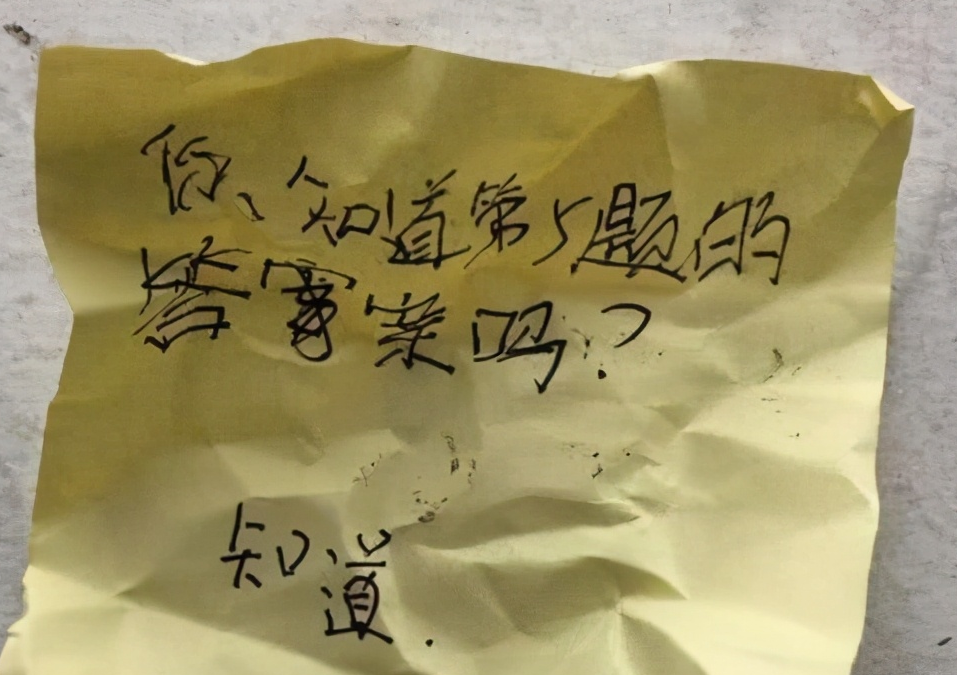 你、知道第5题的
答案吗？
知道.